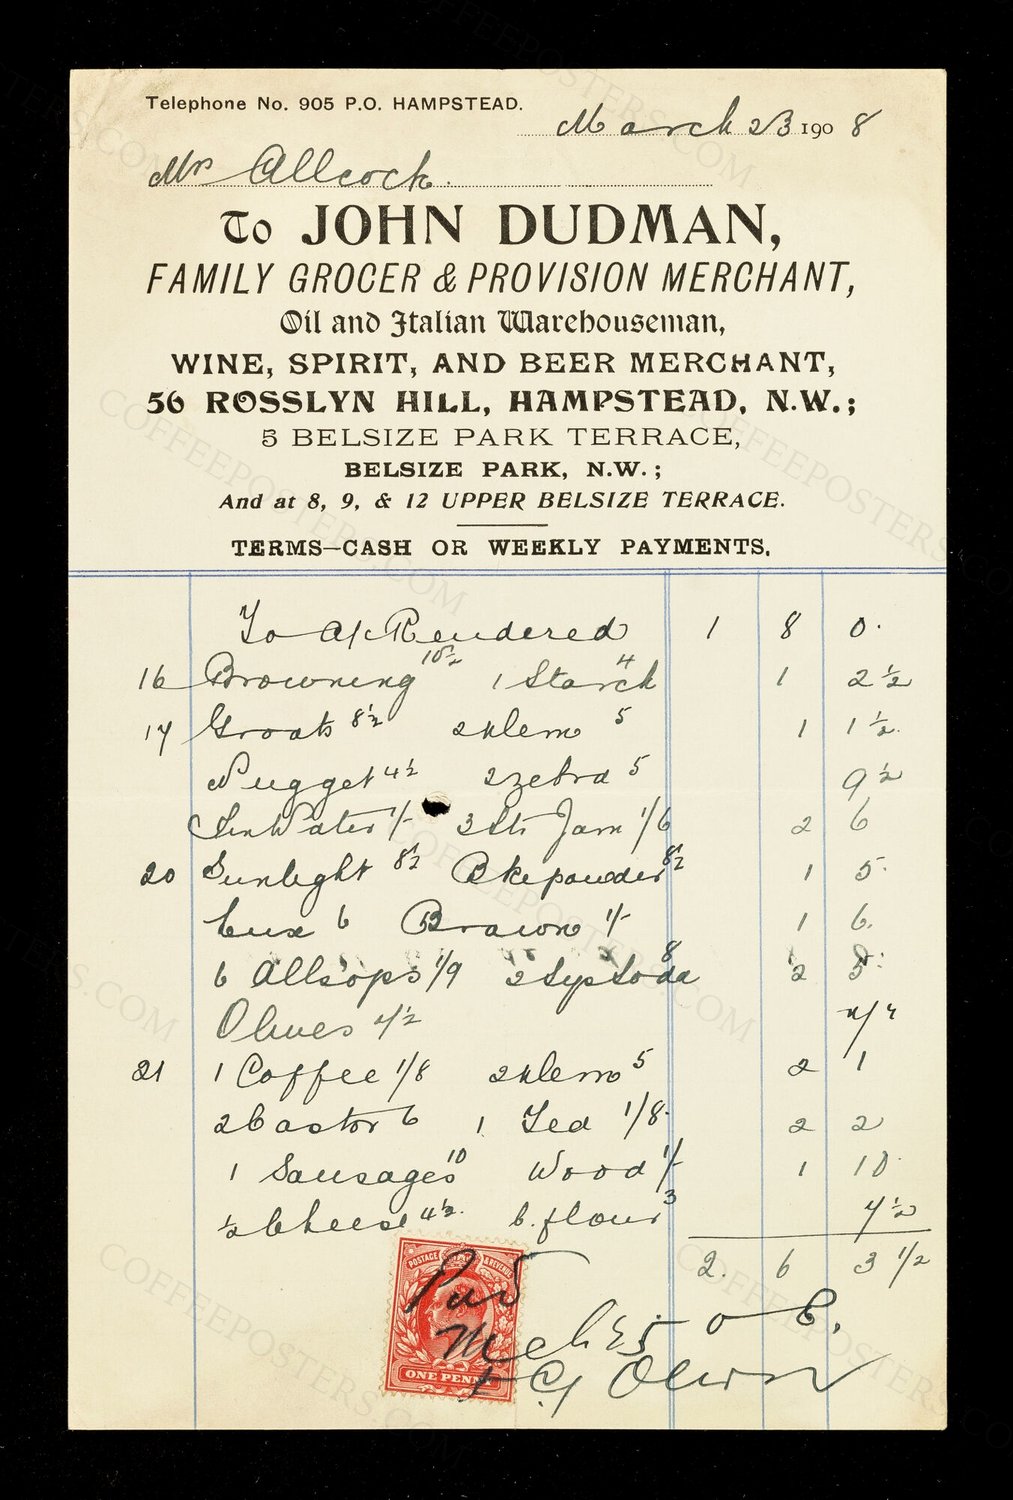 Telephone No. 905 P.O. HAMPSTEAD.
March 23 1908
Mrs Allcock.
To JOHN DUDMAN,
FAMILY GROCER & PROVISION MERCHANT,
Oil and Italian Warehouseman,
WINE, SPIRIT, AND BEER MERCHANT,
56 ROSSLYN HILL, HAMPSTEAD, N.W.;
5 BELSIZE PARK TERRACE,
BELSIZE PARK, N.W.;
And at 8, 9, & 12 UPPER BELSIZE TERRACE.
TERMS—CASH OR WEEKLY PAYMENTS.
To a/c Rendered 1 8 0.
16 Browning 10½ 1 Starch 4 1 2½
17 Groats 8½ 2 klem 5 1 1½
Nugget 4½ 2 zebra 5 9½
Water 1/- 3 Jam 1/6 2 6
20 Sunlight 8½ Bkepowder 8½ 1 5
Lux 6 Brawn 1/- 1 6.
6 Allsops 1/9 2 Syp Soda 8 2 5
Olives 4½
21 1 Coffee 1/8 2 klem 5 2 1
2 Castor 6 1 Tea 1/8 2 2
1 Sausages 10 Wood 1/- 1 10
½ Cheese 4½ 6. flour 3 7½
2. 6 3½
POSTAGE & REVENUE
ONE PENNY
Paid
Mch 25 08.